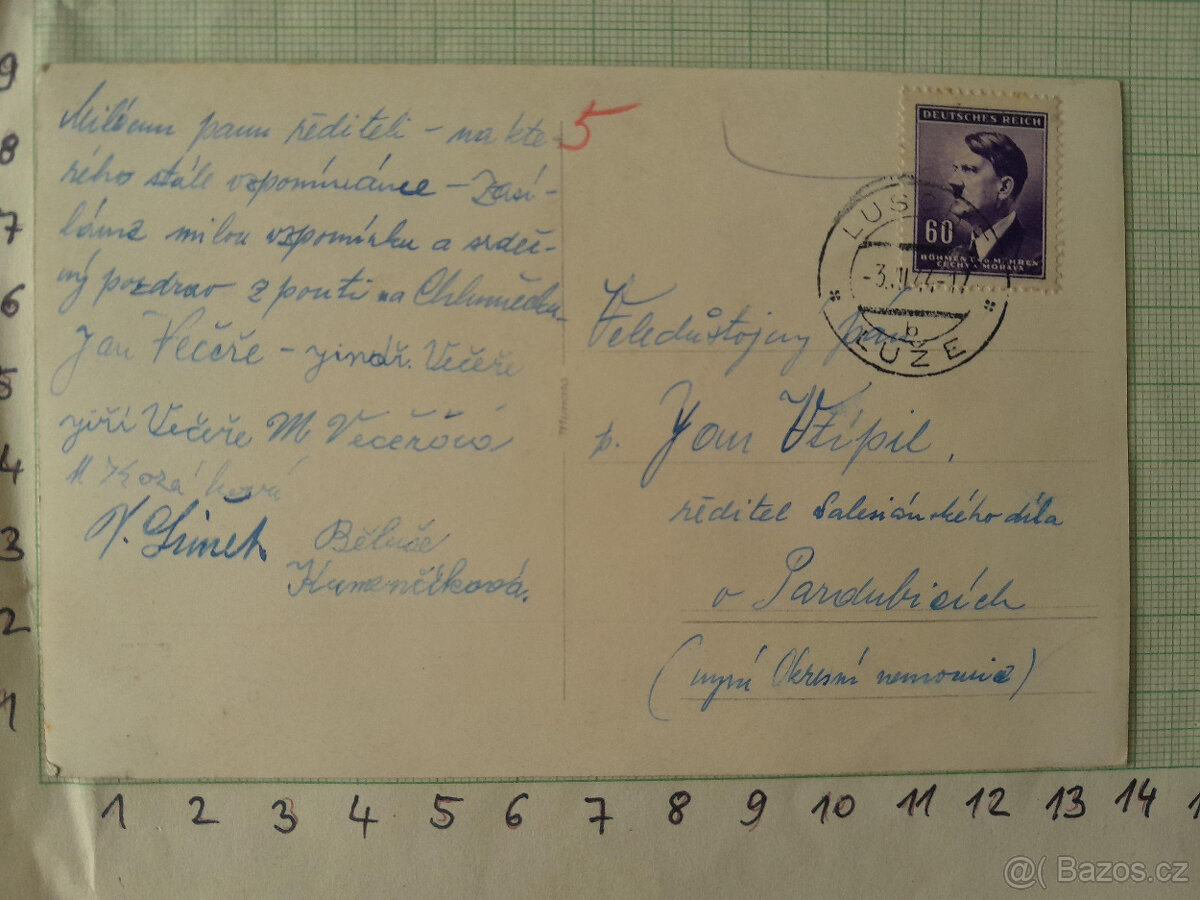 Milému panu řediteli – na kte-
rého stále vzpomínáme – Zasí-
láme milou vzpomínku a srdeč-
ný pozdrav z pouti na Chlumečku.
Jan Večeře – jinář. Večeře
Jiří Večeře M Večeřová
M Kozáková
V. Šimek
Běluše
Kamenčíková.
5
DEUTSCHES REICH
60
BÖHMEN U. MÄHREN
ČECHY A MORAVA
LUSCHE
-3.II.44-17
b
LUŽE
Veledůstojný pan
p. Jan Vtípil,
ředitel Salesiánského díla
v Pardubicích
(nyní Okresní nemocnice)
9
8
7
6
5
4
3
2
1
1 2 3 4 5 6 7 8 9 10 11 12 13 14 1
@( Bazos.cz